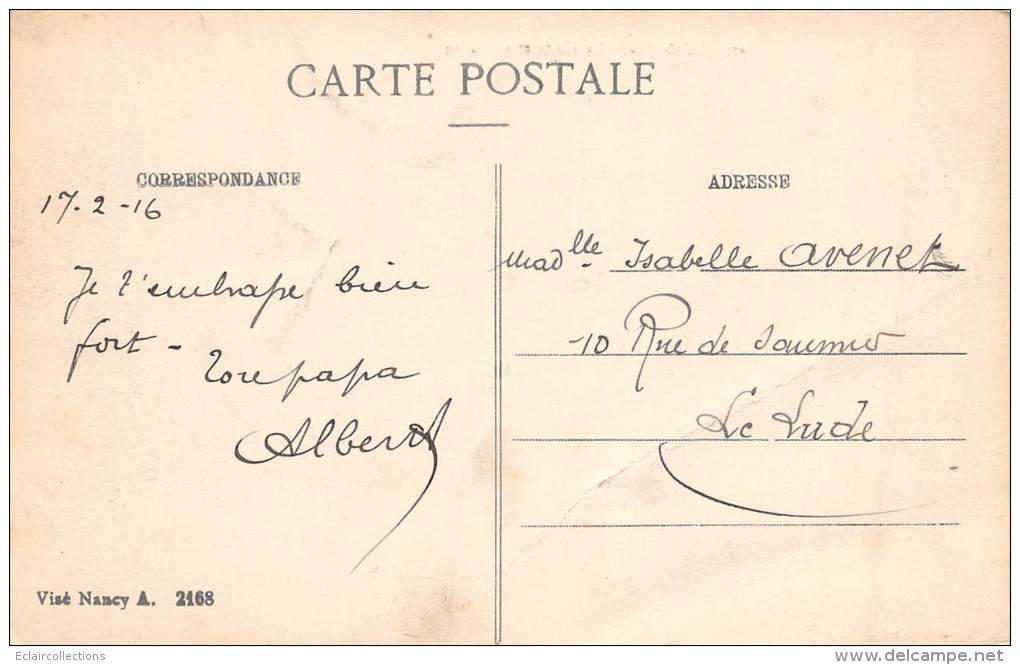 CARTE POSTALE
CORRESPONDANCE
17-2-16
Je t'embrasse bien
fort -
ton papa
Albert
Visé Nancy A. 2168
ADRESSE
Madlle Isabelle Avenet
10 Rue de Saumur
Le Lude
Eclaircollections
www.delcampe.net